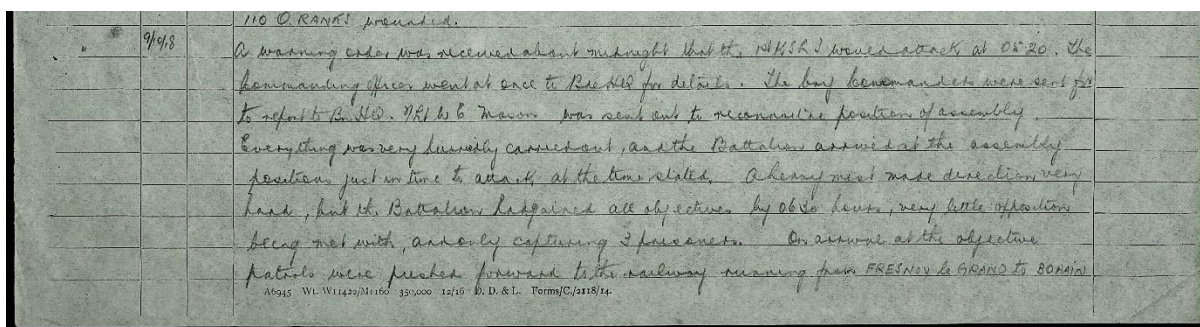 110 O. RANKS wounded.
" 9/10/18 A warning order was received about midnight that the 1/KSLI would attack at 05.20. The
Commanding Officer went at once to Bde HQ for details. The Coy Commanders were sent for
to report to Bn. HQ. 2/Lt W E Mason was sent out to reconnoitre position of assembly.
Everything was very hurriedly carried out, and the Battalion arrived at the assembly
positions just in time to attack at the time stated. A heavy mist made direction very
hard, but the Battalion had gained all objectives by 0630 hours, very little opposition
being met with, and only capturing 3 prisoners. On arrival at the objective
patrols were pushed forward to the railway running from FRESNOY le GRAND to BOHAIN
A6945 Wt. W11422/M1160 350,000 12/16 D. D. & L. Forms/C./2118/14.